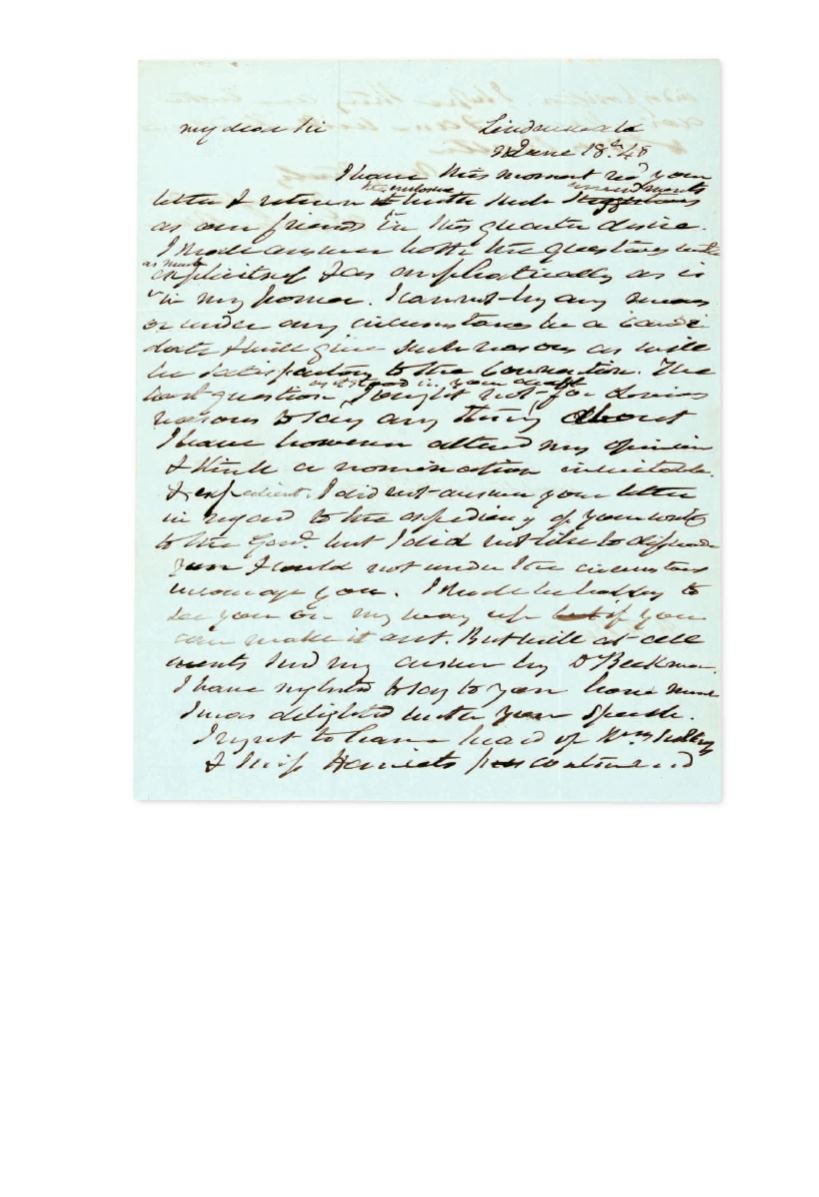 my dear Sir Lindenwald
June 18th 48
I have this moment recd your
the enclosure amendments
letter & return it with such suggestions
as our friends in this quarter desire.
I shall answer both the questions with
as much
explicitness & as emphatically as is
in my power. I cannot by any means
or under any circumstances be a candi
date & will give such reasons as will
be satisfactory to the Convention. The
as it stood in your draft
last question, I ought not for obvious
reasons to say any thing about
I have however altered my opinion
& think a nomination inevitable
& expedient. I did not answer your letter
in regard to the expediency of your writing
to the Govr. but I did not like to dissuade
you & could not under the circumstances
encourage you. I shall be happy to
see you on my way up but if you
can make it out. But will at all
events send my answer by Dr Beekman.
I have neglected to say to you how much
I was delighted with your Speech.
I regret to have heard of
& Miss Harriets continued